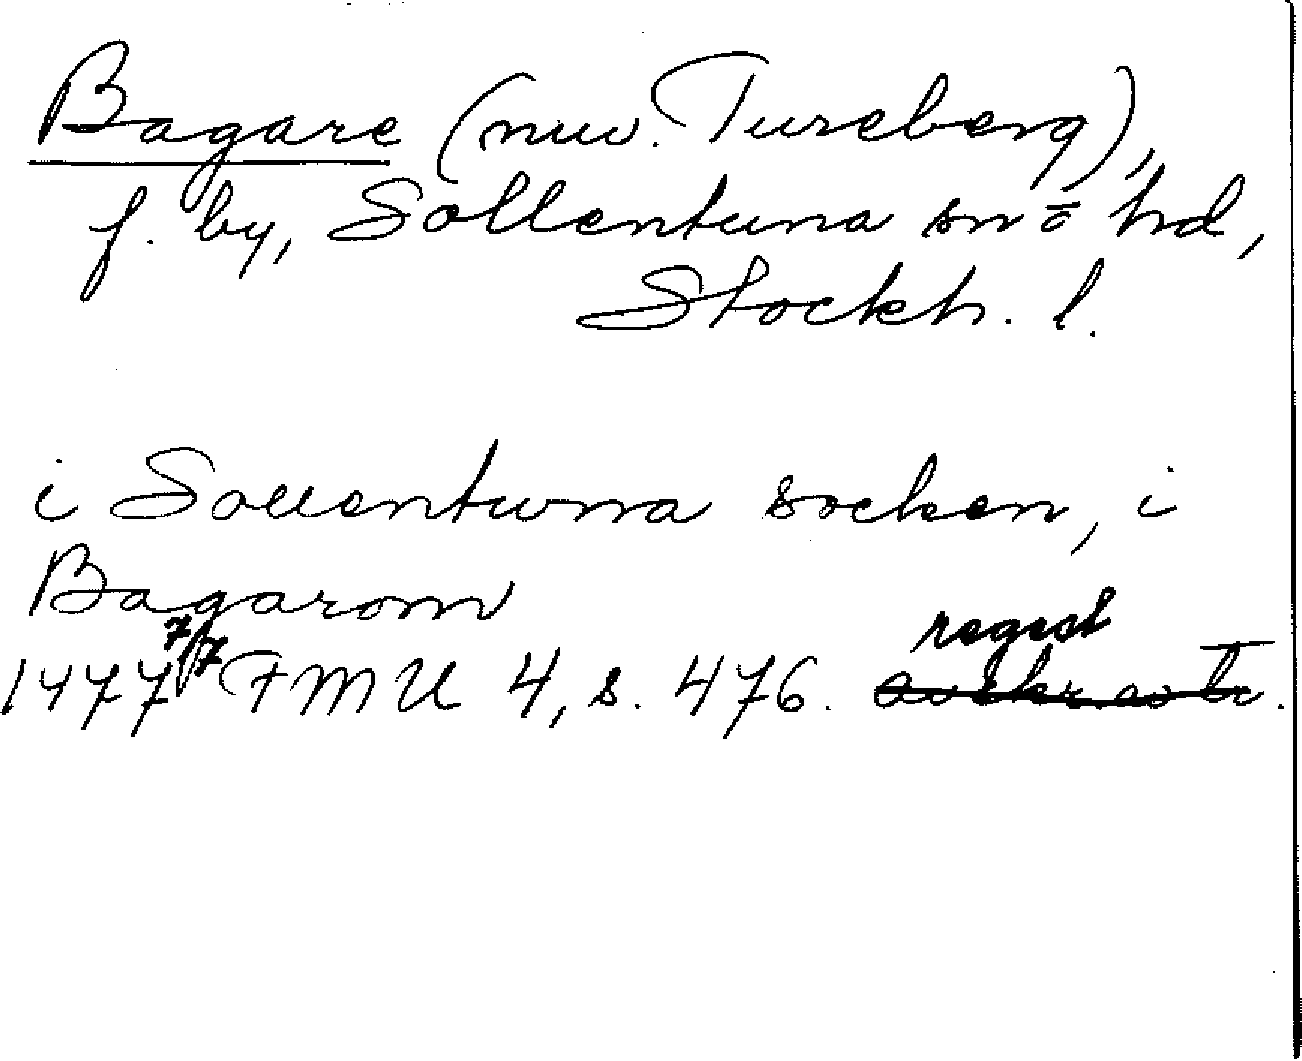 Bagare (nuv. Tureberg),
f. by, Sollentuna sn ō hd,
Stockh. l.
i Sollentuna socken, i
Bagarom
regest
1477 7/7 FMU 4, s. 476.